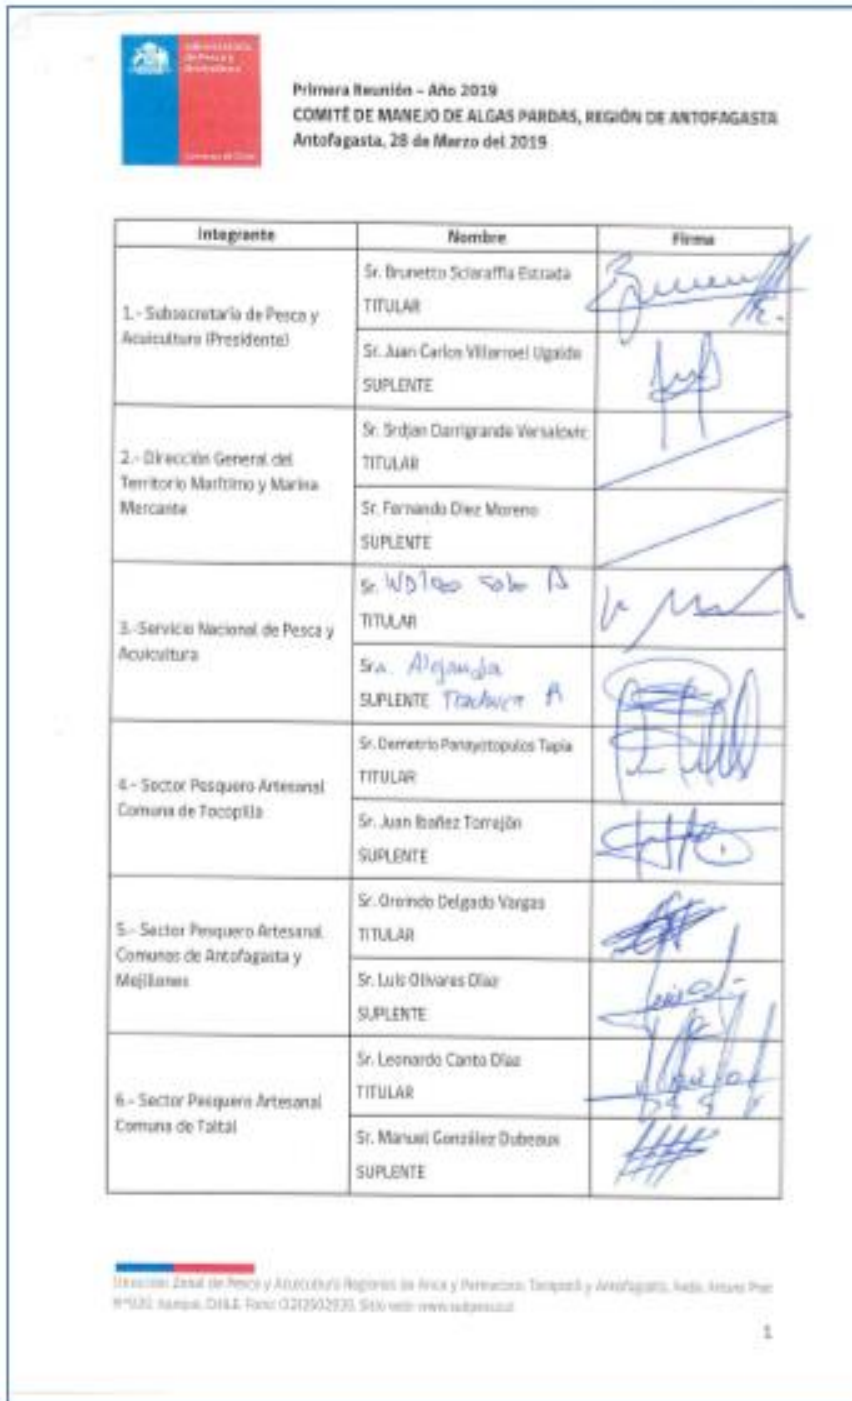 Subsecretaría
de Pesca y
Acuicultura
Gobierno de Chile
Primera Reunión – Año 2019
COMITÉ DE MANEJO DE ALGAS PARDAS, REGIÓN DE ANTOFAGASTA
Antofagasta, 28 de Marzo del 2019
Integrante Nombre Firma
1.- Subsecretaría de Pesca y
Acuicultura (Presidente)
Sr. Brunetto Sciaraffia Estrada
TITULAR
Sr. Juan Carlos Villarroel Ugalde
SUPLENTE
2.- Dirección General del
Territorio Marítimo y Marina
Mercante
Sr. Srdjan Darrigrande Versalovic
TITULAR
Sr. Fernando Diez Moreno
SUPLENTE
3.-Servicio Nacional de Pesca y
Acuicultura
Sr.
TITULAR
Sra. Alejandra
SUPLENTE
4.- Sector Pesquero Artesanal
Comuna de Tocopilla
Sr. Demetrio Panayotopulos Tapia
TITULAR
Sr. Juan Ibañez Torrejón
SUPLENTE
5.- Sector Pesquero Artesanal
Comunas de Antofagasta y
Mejillones
Sr. Oroindo Delgado Vargas
TITULAR
Sr. Luis Olivares Díaz
SUPLENTE
6.- Sector Pesquero Artesanal
Comuna de Taltal
Sr. Leonardo Canto Díaz
TITULAR
Sr. Manuel González Dubeaux
SUPLENTE
Dirección Zonal de Pesca y Acuicultura Regiones de Arica y Parinacota, Tarapacá y Antofagasta, Avda. Arturo Prat
Iquique, CHILE. Sitio web: www.subpesca.cl
1